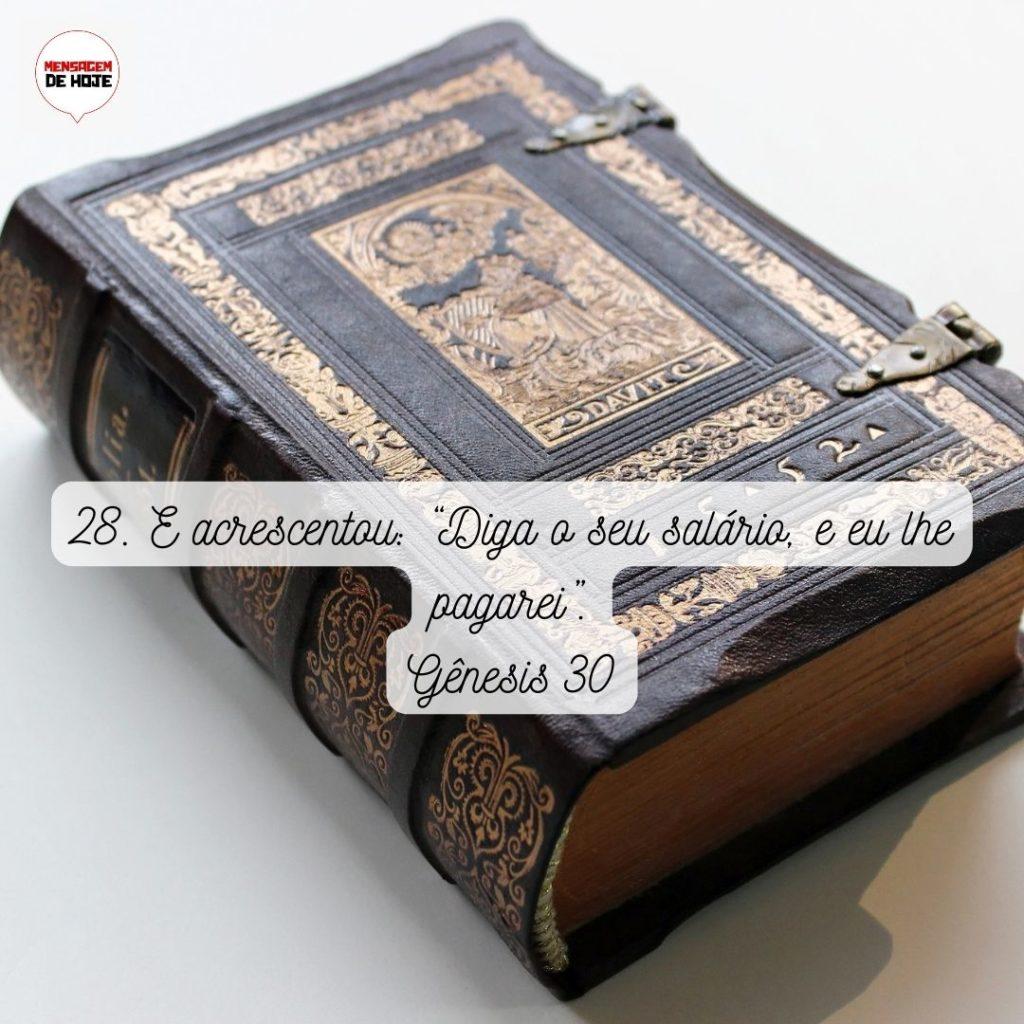 MENSAGEM
DE HOJE
DAVID
28. E acrescentou: “Diga o seu salário, e eu lhe
pagarei”.
Gênesis 30